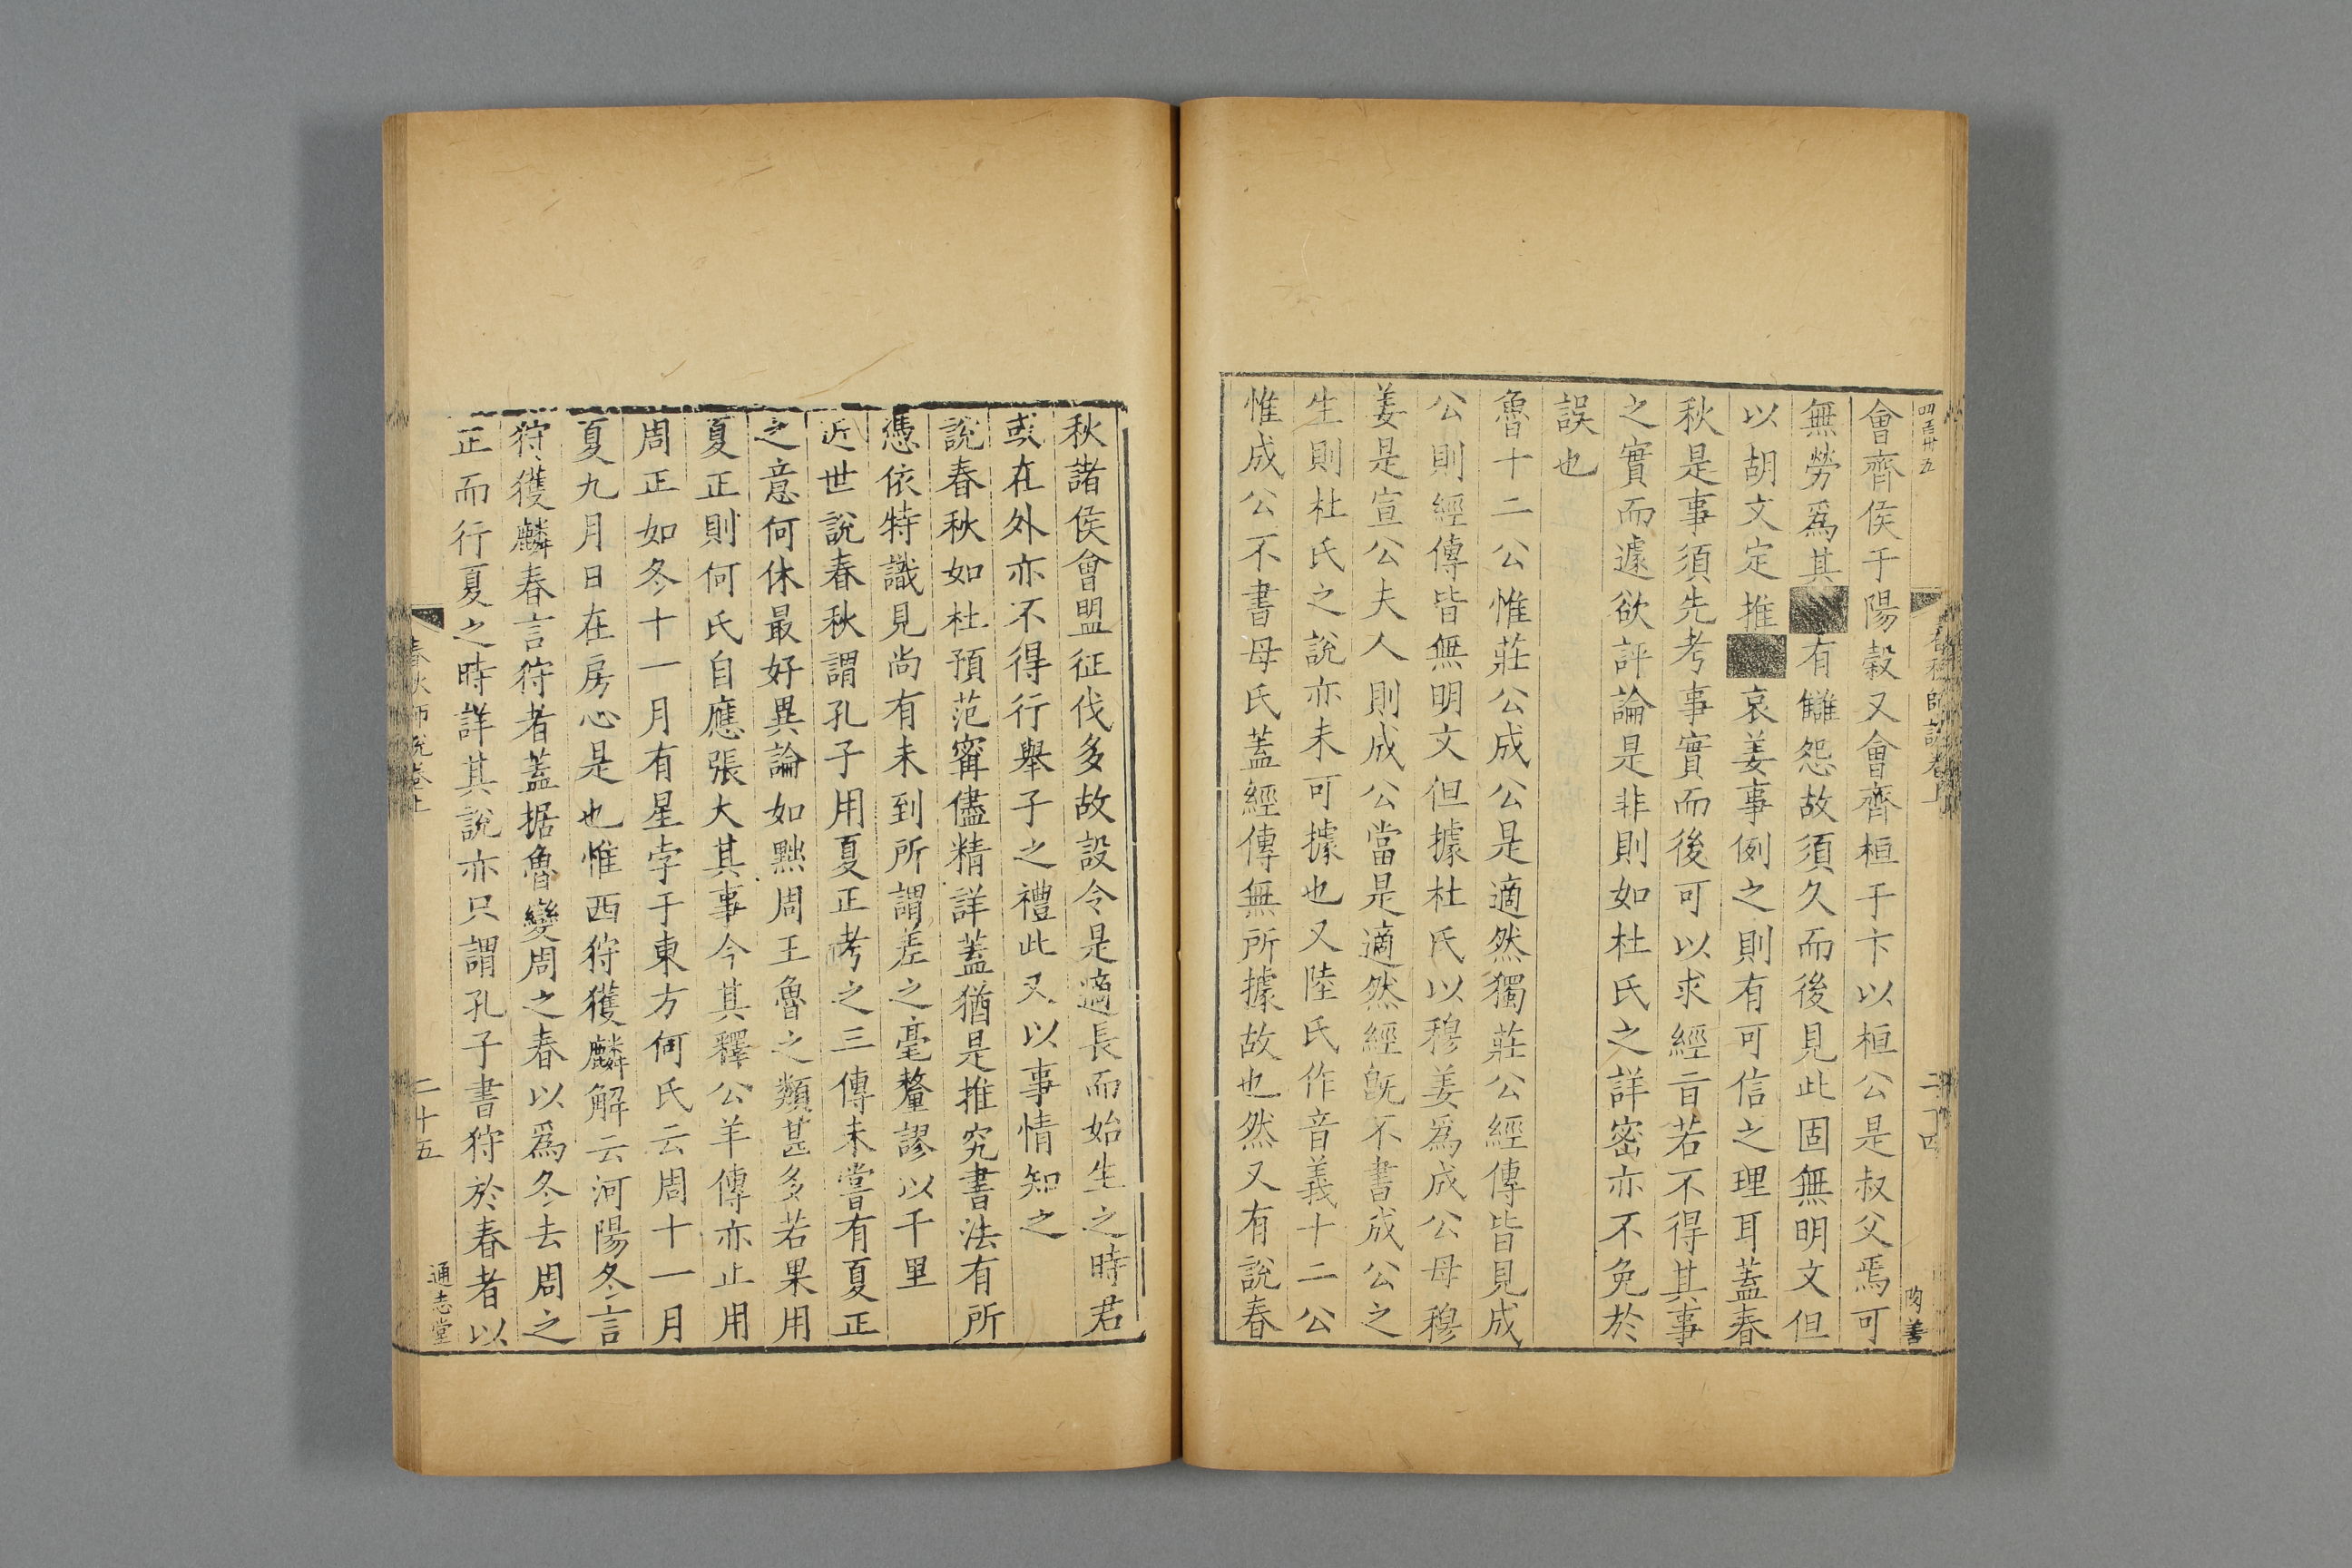 四百廿五
會齊侯于陽穀又會齊桓于卞以桓公是叔父焉可
無勞爲其有讎怨故須久而後見此固無明文但
以胡文定推哀姜事例之則有可信之理耳蓋春
秋是事須先考事實而後可以求經旨若不得其事
之實而遽欲評論是非則如杜氏之詳密亦不免於
誤也
魯十二公惟莊公成公是適然獨莊公經傳皆見成
公則經傳皆無明文但據杜氏以穆姜爲成公母穆
姜是宣公夫人則成公當是適然經旣不書成公之
生則杜氏之說亦未可據也又陸氏作音義十二公
惟成公不書母氏蓋經傳無所據故也然又有說春
秋諸侯會盟征伐多故設令是適長而始生之時君
或在外亦不得行舉子之禮此又以事情知之
說春秋如杜預范甯儘精詳蓋猶是推究書法有所
憑依特識見尚有未到所謂差之毫釐謬以千里
近世說春秋謂孔子用夏正考之三傳未嘗有夏正
之意何休最好異論如黜周王魯之類甚多若果用
夏正則何氏自應張大其事今其釋公羊傳亦止用
周正如冬十一月有星孛于東方何氏云周十一月
夏九月日在房心是也惟西狩獲麟解云河陽冬言
狩獲麟春言狩者蓋据魯變周之春以爲冬去周之
正而行夏之時詳其說亦只謂孔子書狩於春者以
春秋師說卷上
二十五
通志堂